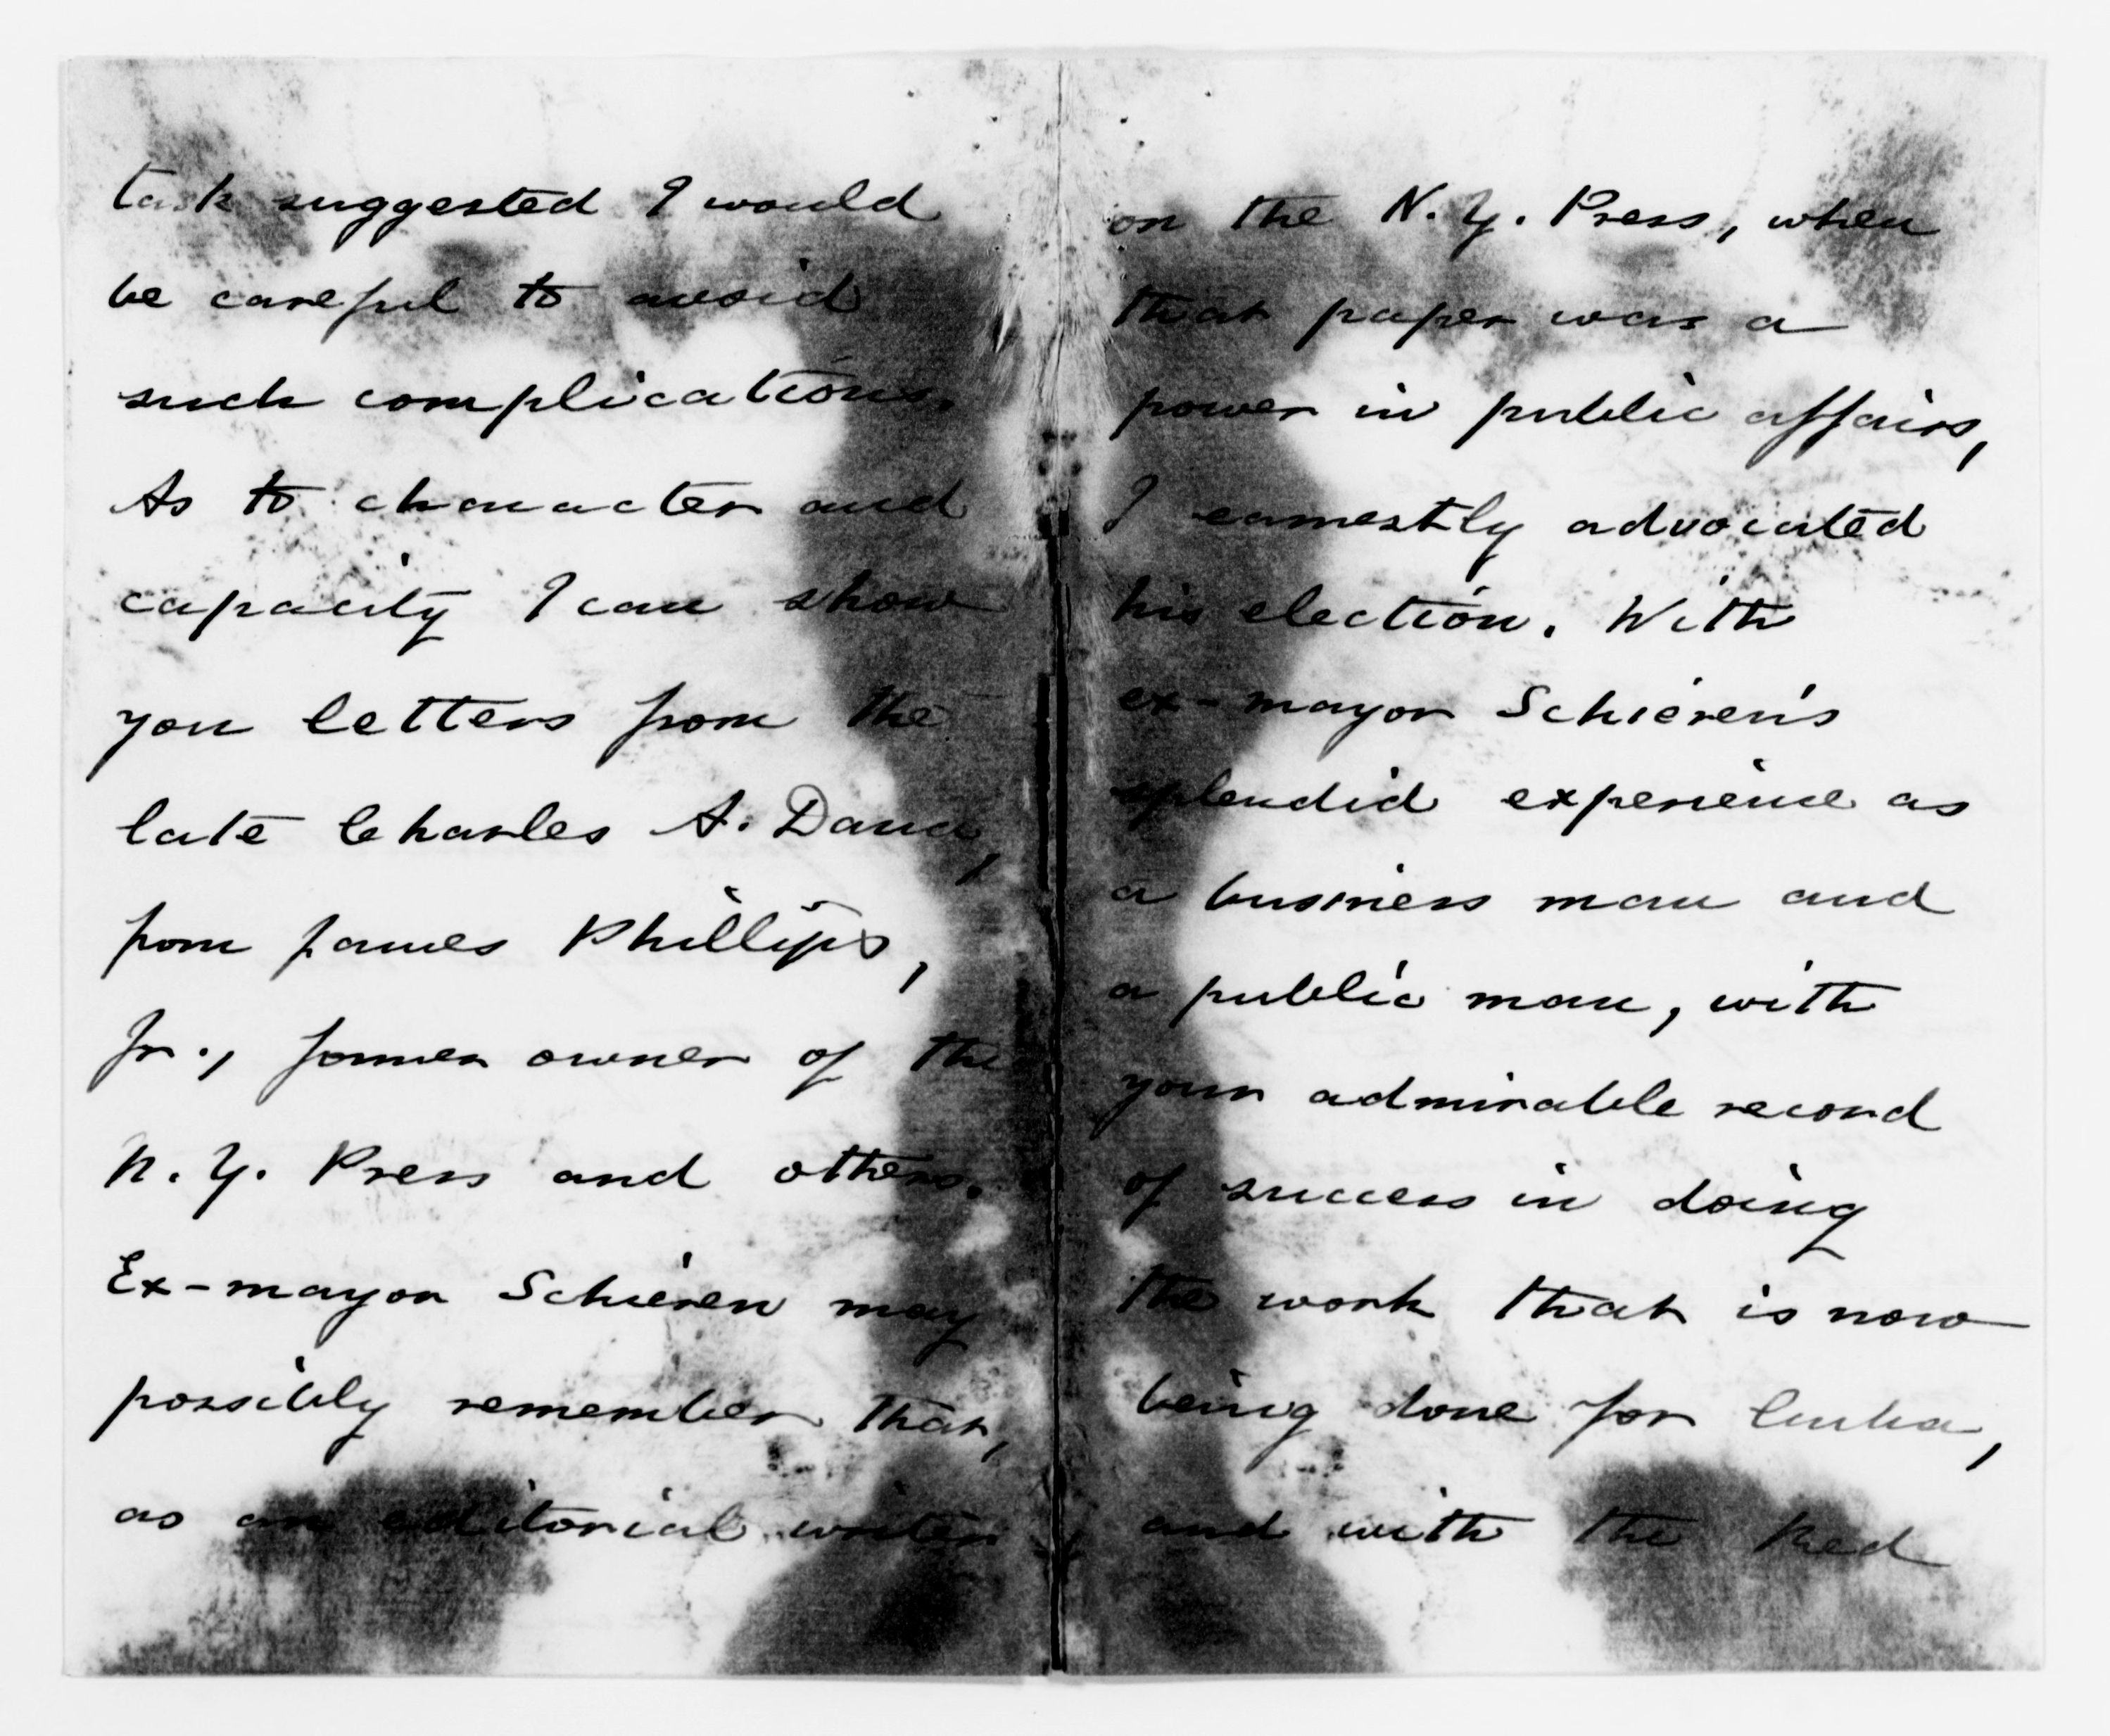 task suggested I would
be careful to avoid
such complications.
As to character and
capacity I can show
you letters from the
late Charles A. Dana,
from James Phillips,
Jr., former owner of the
N. Y. Press and others.
Ex-mayor Schieren may
possibly remember that,
as an editorial writer
on the N. Y. Press, when
that paper was a
power in public affairs,
I earnestly advocated
his election. With
ex-mayor Schieren's
splendid experience as
a business man and
a public man, with
your admirable record
of success in doing
the work that is now
being done for Cuba,
and with the Red